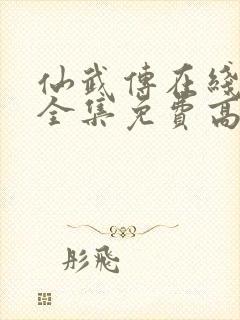 仙武傳在綫
全集免費高
彤飛